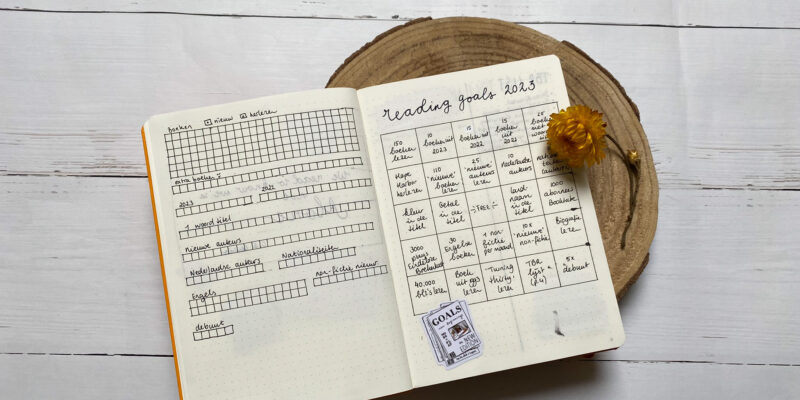 boeken nieuw herlezen
extra boeken
2023 2022
1 woord titel
nieuwe auteurs
Nederlandse auteurs Nationaliteiten
Engels non-fiche nieuw
debuut
reading goals 2023
150
boeken
lezen
10
boeken uit
2023
15
boeken uit
15
boeken
uit
25
boeken
met
Hope
Harbor
herlezen
110
'nieuwe'
boeken
lezen
25
'nieuwe'
auteurs
lezen
10
Nederlandse
auteurs
kleur
in de
titel
Getal
in de
titel
FREE
land-
naam in
de titel
1000
abonnees
Boekhoek
3000
grens
30
Engelse
boeken
1 non-
fiche
per maand
10x
'nieuwe'
non-fiche
Biografie
lezen
40.000
blz's lezen
Boek
uit
lezen
Tuning
thirty
lezen
TBR
lijst
(x4)
5x
debuut
GOALS
NEW
EDITION